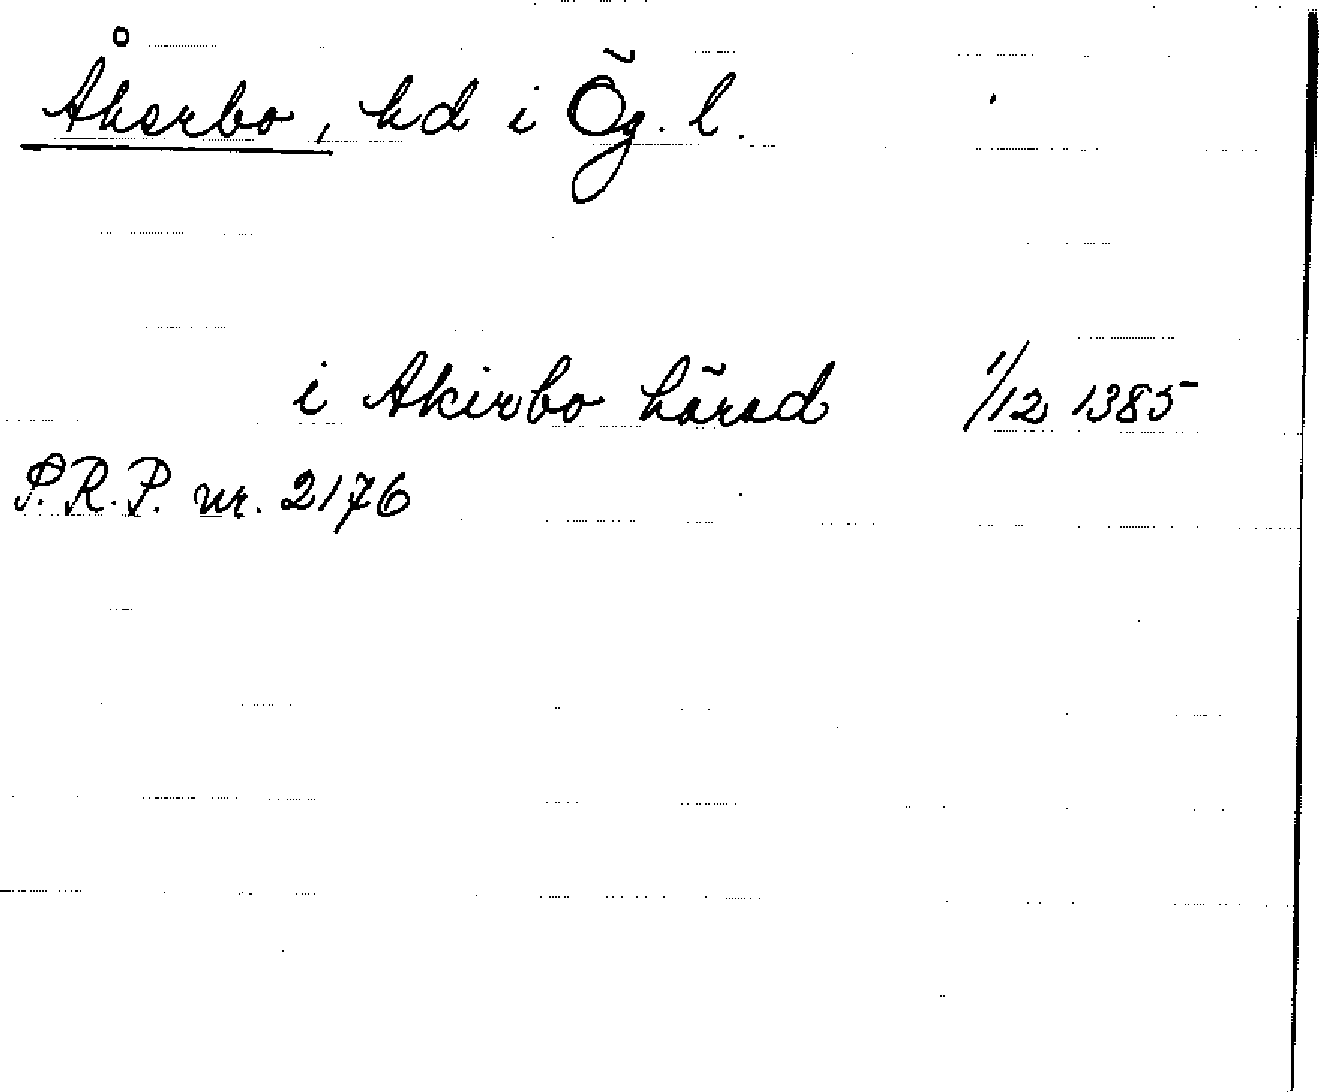 Åkerbo, hd i Ög. l.
i Akirbo härad 1/12 1385
S.R.P. nr. 2176